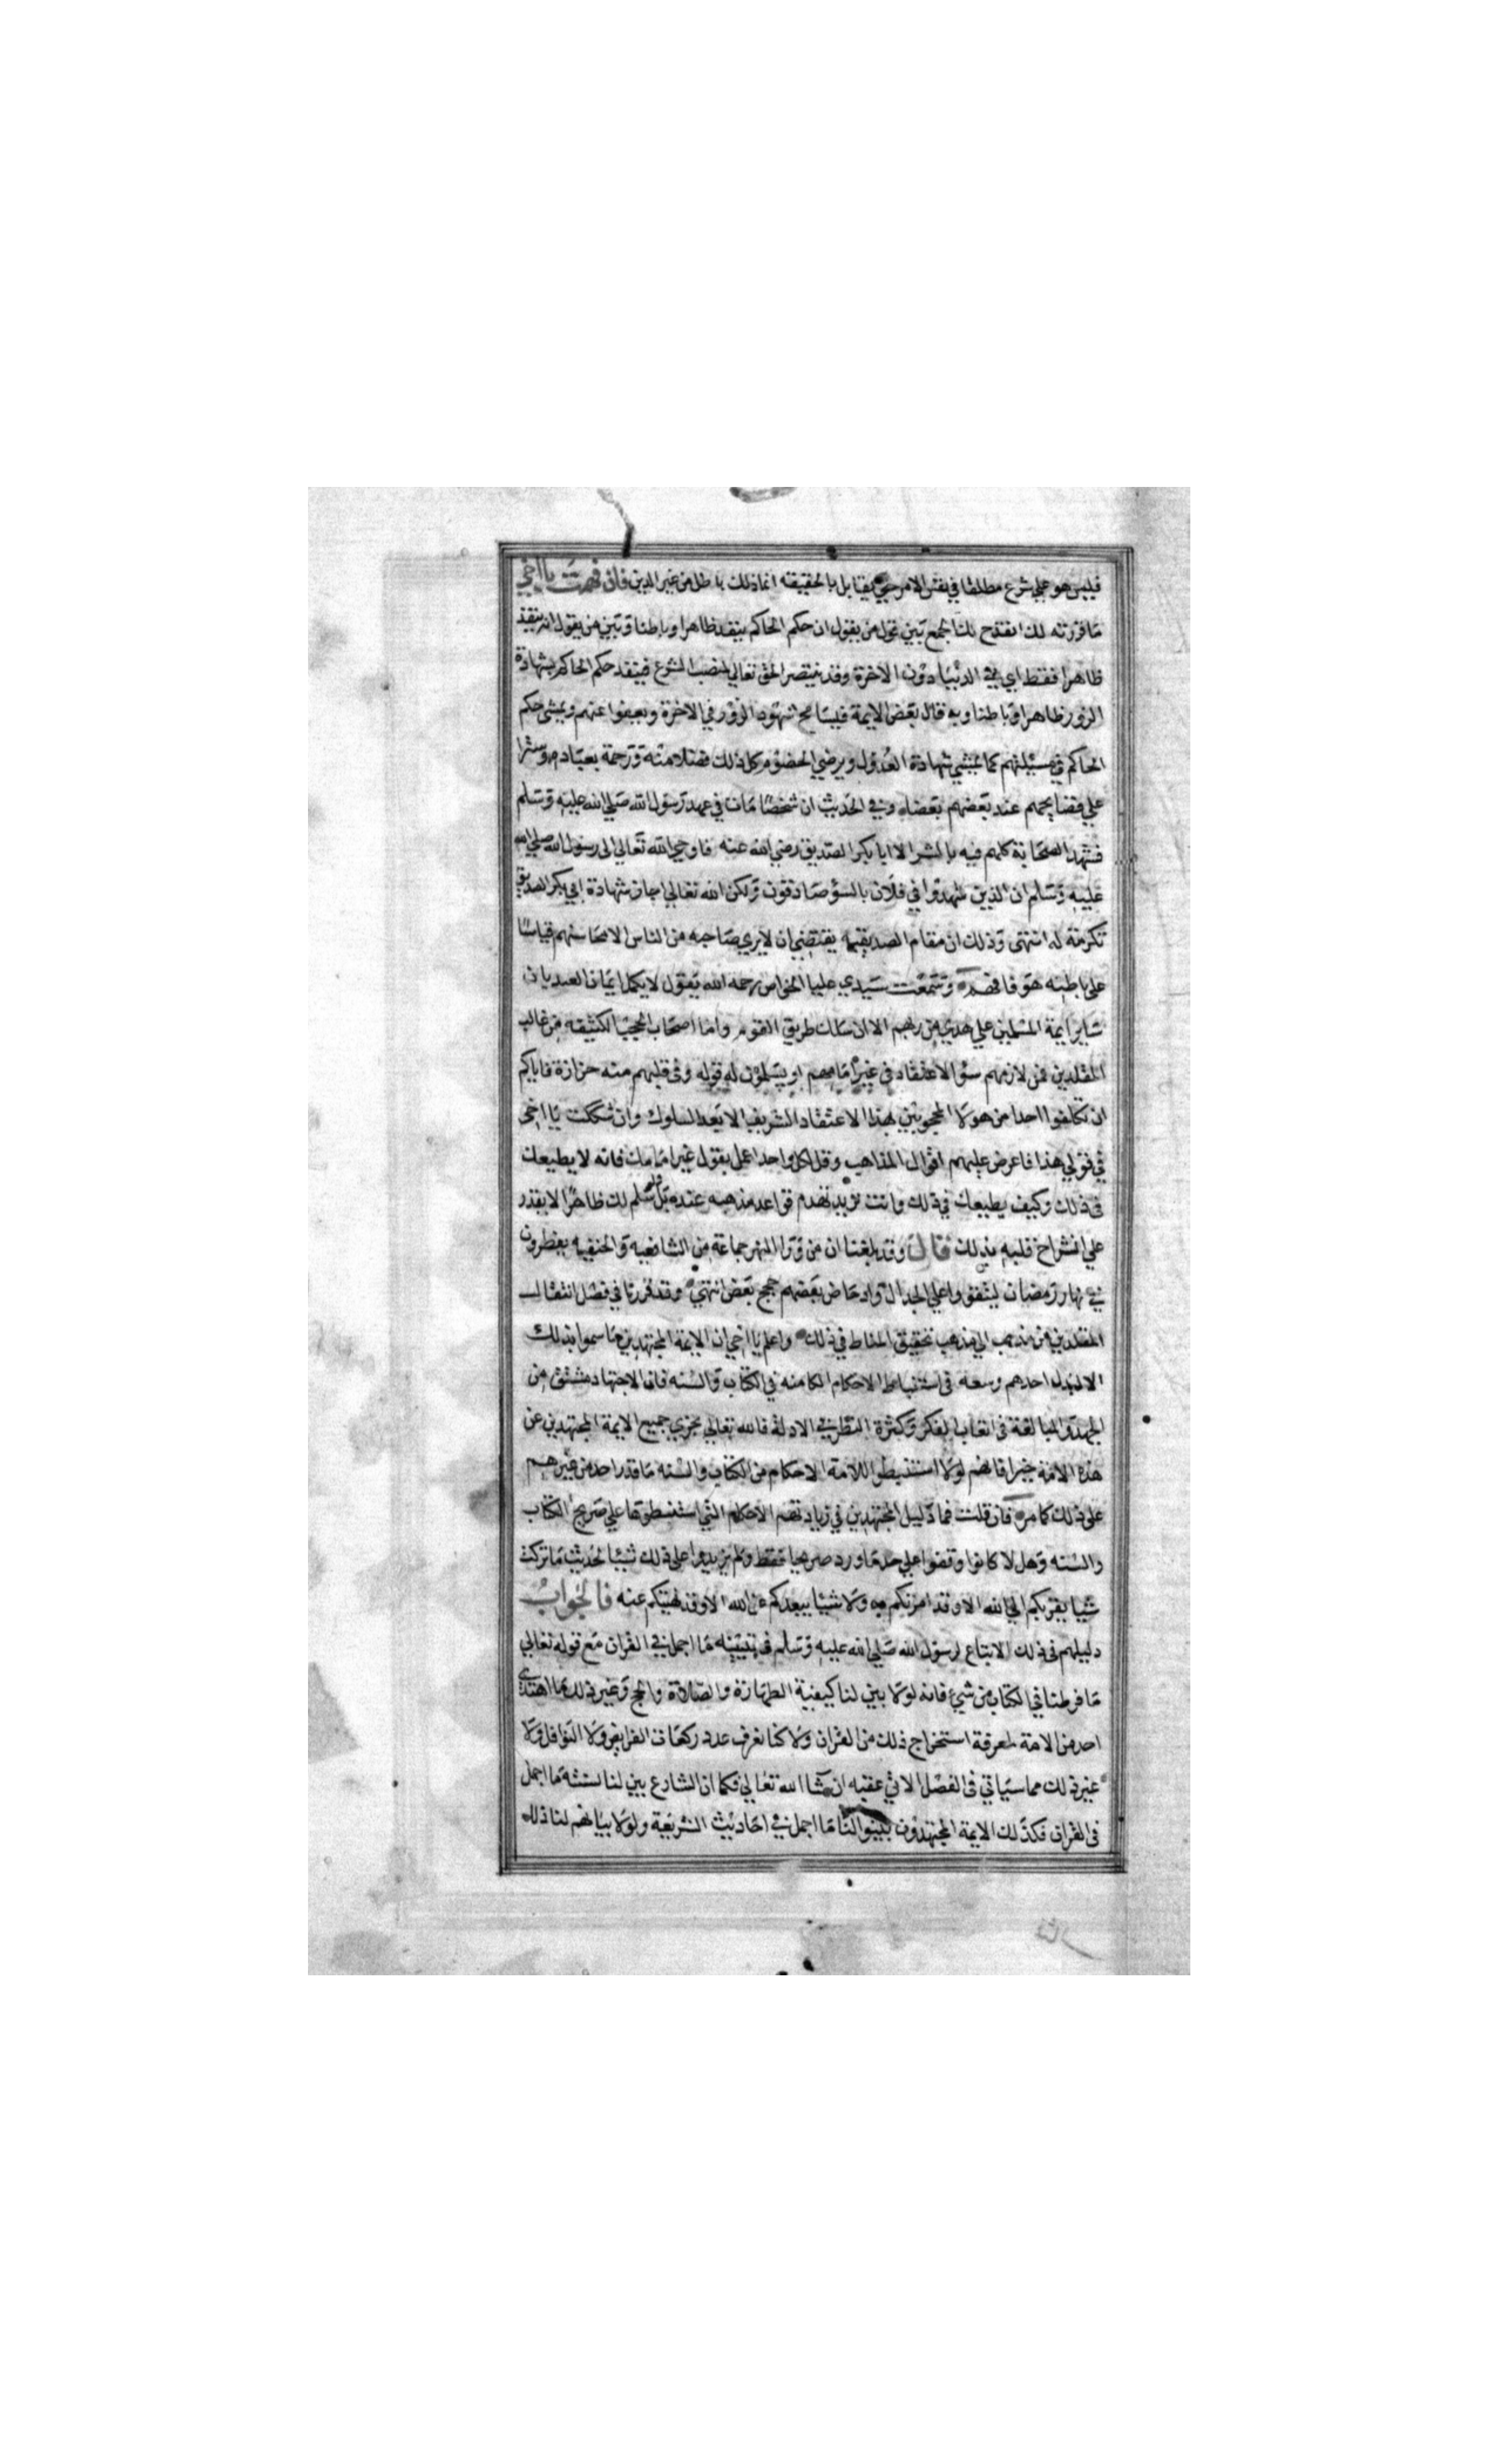 فليس هو علي شرع مطلقا في نفس الامر حتي يقابل بالحقيقه انما ذلك باطل من غير الدين فان فهمت يا اخي
ما قررته لك انقدح لك الجمع بين قول من يقول ان حكم الحاكم ينفد ظاهرا وباطنا وبين من يقول انه ينفذ
ظاهرا فقط اي في الدنيا دون الاخرة وقد ينتصر الحق تعالي لمنصب الشرع فينفد حكم الحاكم بشهادة
الزور ظاهرا وباطنا وبه قال بعض الايمة فيسامح شهود الزور في الاخرة ويعفوا عنهم ويمشي حكم
الحاكم في مسيلتهم كما يمشي شهادة العدول ويرضي الخصوم كل ذلك فضلا منه ورحمة بعباده وسترا
علي فضايحهم عند بعضهم بعضا وفي الحديث ان شخصا مات في عهد رسول الله صلي الله عليه وسلم
فشهد الصحابة كلهم فيه بالشر الا ابا بكر الصديق رضي الله عنه فاوحي الله تعالي الى رسول الله صلي الله
عليه وسلم ان الذين شهدوا في فلان بالسؤ صادقون ولكن الله تعالي اجاز شهادة ابي بكر الصديق
تكرمة له انتهى وذلك ان مقام الصديقيه يقتضي ان لا يري صاحبه من الناس الا محاسنهم قياسا
على باطنه هو فافهم وسمعت سيدي عليا الخواص رحمه الله يقول لا يكمل ايمان العبد بان
ساير ايمة المسلمين علي هدي من ربهم الا ان سلك طريق القوم واما اصحاب الحجب الكثيفه من غالب
المقلدين فمن لازمهم سؤ الاعتقاد في غير امامهم او يسلمون له قوله وفي قلبهم منه حزازة فاياكم
ان تكلفوا احدا من هولا المحجوبين بهذا الاعتقاد الشريف الا بعد السلوك وان شككت يا اخي
في قولي هذا فاعرض عليهم اقوال المذاهب وقل لكل واحد اعمل بقول غير امامك فانه لا يطيعك
في ذلك وكيف يطيعك في ذلك وانت تريد تهدم قواعد مذهبه عنده بل ولو سلم لك ظاهرا لا يقدر
علي انشراح قلبه بذلك قال وقد بلغنا ان من ورا النهر جماعة من الشافعيه والحنفيه يفطرون
في نهار رمضان ليتقووا علي الجدال وادحاض بعضهم حجج بعض انتهي وقد قررنا في فصل انتقال
المقلدين من مذهب الي مذهب تحقيق المناط في ذلك واعلم يا اخي ان الايمة المجتهدين ما سموا بذلك
الا لبذل احدهم وسعه في استنباط الاحكام الكامنه في الكتاب والسنه فان الاجتهاد مشتق من
الجهد والمبالغة في اتعاب الفكر وكثرة النظر في الادلة فالله تعالي يجزي جميع الايمة المجتهدين عن
هذه الامة خيرا فانهم لولا استنبطوا للامة الاحكام من الكتاب والسنه ما قدر احد من غيرهم
على ذلك كما مر فان قلت فما دليل المجتهدين في زيادتهم الاحكام التي استنبطوها علي صريح الكتاب
والسنه وهل لا كانوا وقفوا علي حد ما ورد صريحا فقط ولم يزيدوا على ذلك شيئا لحديث ما تركت
شيا يقربكم الي الله الا وقد امرتكم به ولا شييا يبعدكم عن الله الا وقد نهيتكم عنه فالجواب
دليلهم في ذلك الاتباع لرسول الله صلي الله عليه وسلم في تبيينه ما اجمل في القران مع قوله تعالي
ما فرطنا في الكتاب من شيء فانه لولا بين لنا كيفية الطهارة والصلاة والحج وغير ذلك ما اهتدي
احد من الامة لمعرفة استخراج ذلك من القران ولا كنا نعرف عدد ركعات الفرايض ولا النوافل ولا
غير ذلك مما سياتي في الفصل الاتي عقبه ان شا الله تعالي فكما ان الشارع بين لنا بسنته ما اجمل
في القران فكذلك الايمة المجتهدون بينوا لنا ما اجمل في احاديث الشريعة ولولا بيانهم لنا ذلك